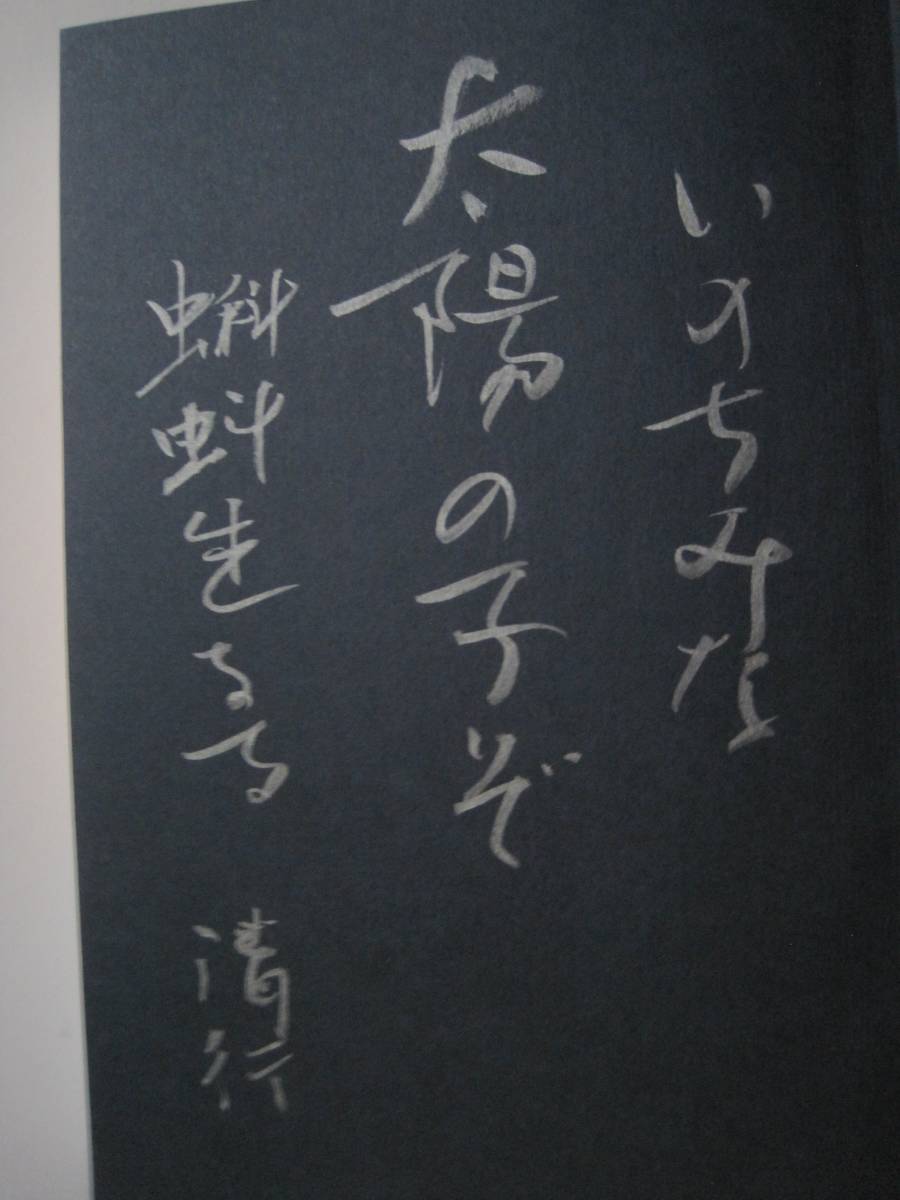 いのちみな
太陽の子ぞ
蝌蚪生るる 清行